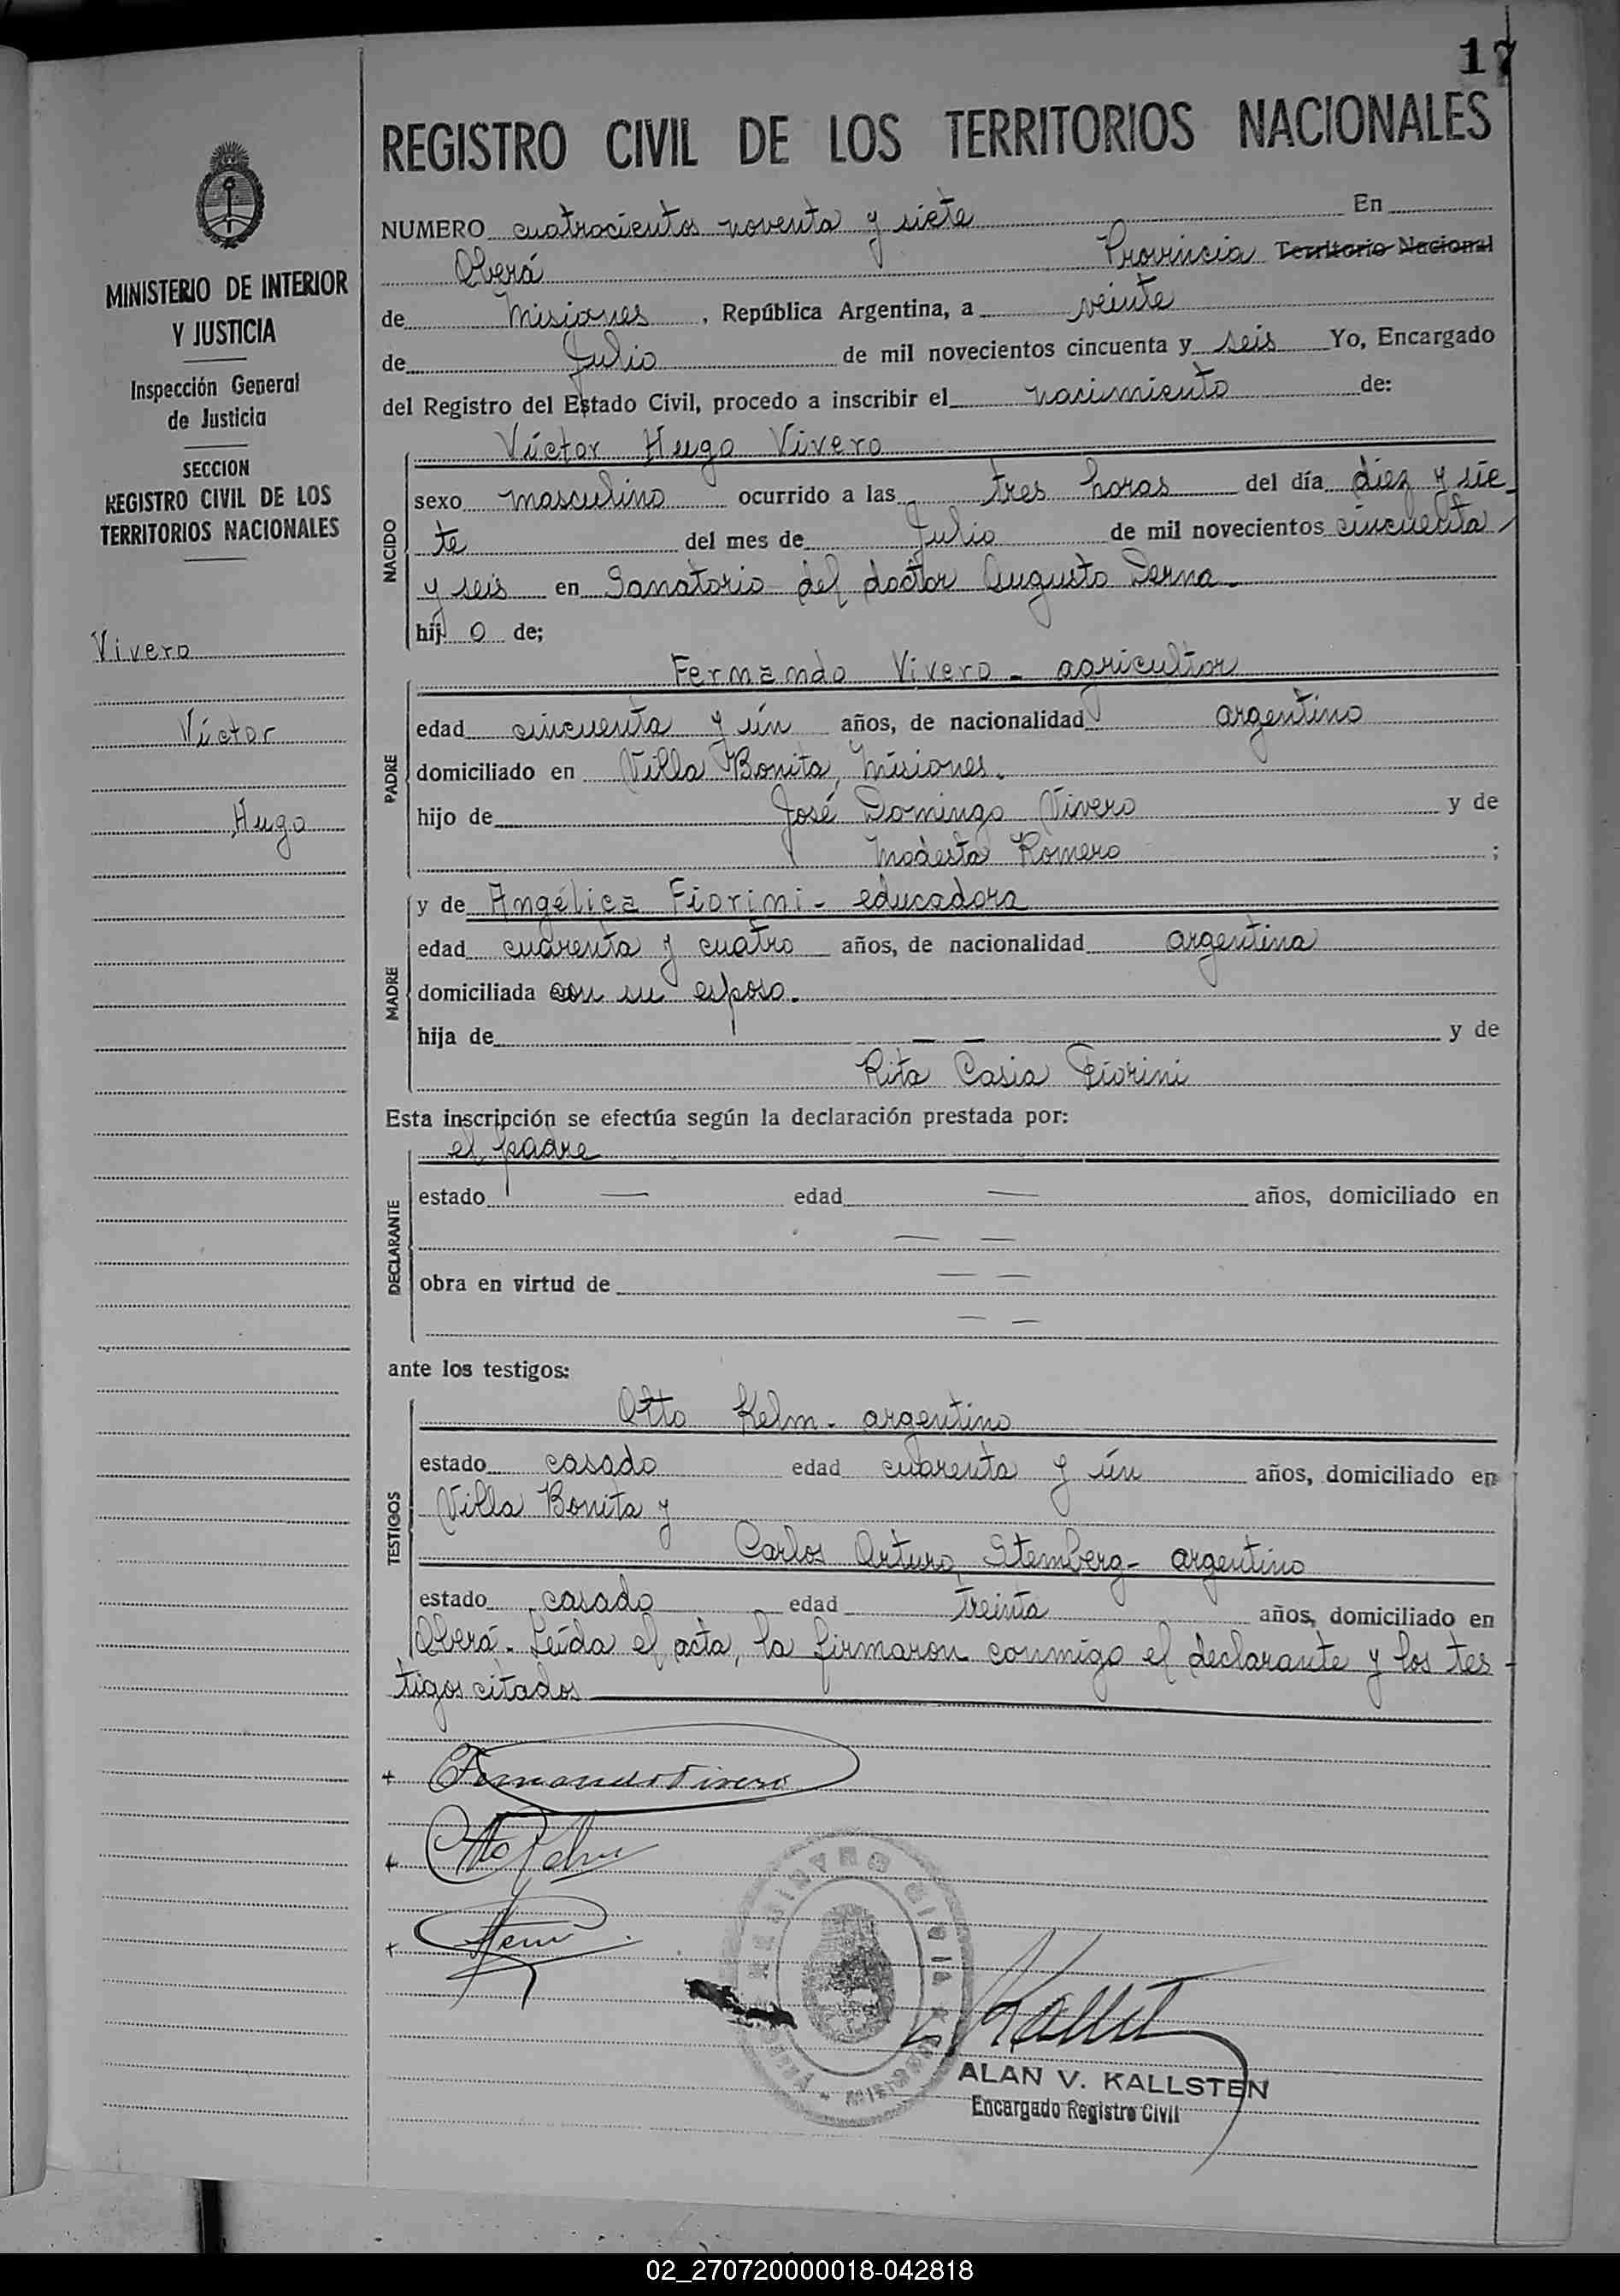 17
REGISTRO CIVIL DE LOS TERRITORIOS NACIONALES
MINISTERIO DE INTERIOR
Y JUSTICIA
Inspección General
de Justicia
SECCION
REGISTRO CIVIL DE LOS
TERRITORIOS NACIONALES
Vivero
Víctor
Hugo
NUMERO cuatrocientos noventa y siete En
Oberá Provincia Territorio Nacional
de Misiones, República Argentina, a veinte
de Julio de mil novecientos cincuenta y seis Yo, Encargado
del Registro del Estado Civil, procedo a inscribir el nacimiento de:
NACIDO
Víctor Hugo Vivero
sexo masculino ocurrido a las tres horas del día diez y sie-
te del mes de Julio de mil novecientos cincuenta
y seis en Sanatorio del doctor Augusto Derna-
hijo de;
PADRE
Fernando Vivero - agricultor
edad cincuenta y ún años, de nacionalidad argentino
domiciliado en Villa Bonita, Misiones.
hijo de José Domingo Vivero y de
Modesta Romero ;
MADRE
y de Angélica Fiorini - educadora
edad cuarenta y cuatro años, de nacionalidad argentina
domiciliada con su esposo.
hija de — — y de
Rita Casia Fiorini
Esta inscripción se efectúa según la declaración prestada por:
DECLARANTE
el padre
estado — edad — años, domiciliado en
— —
obra en virtud de — —
— —
ante los testigos:
TESTIGOS
Otto Kelm - argentino
estado casado edad cuarenta y ún años, domiciliado en
Villa Bonita y
Carlos Arturo Stemberg - argentino
estado casado edad treinta años, domiciliado en
Oberá - Leída el acta, la firmaron conmigo el declarante y los tes-
tigos citados
Fernando Vivero
Otto Kelm
ALAN V. KALLSTEN
Encargado Registro Civil
02_270720000018-042818